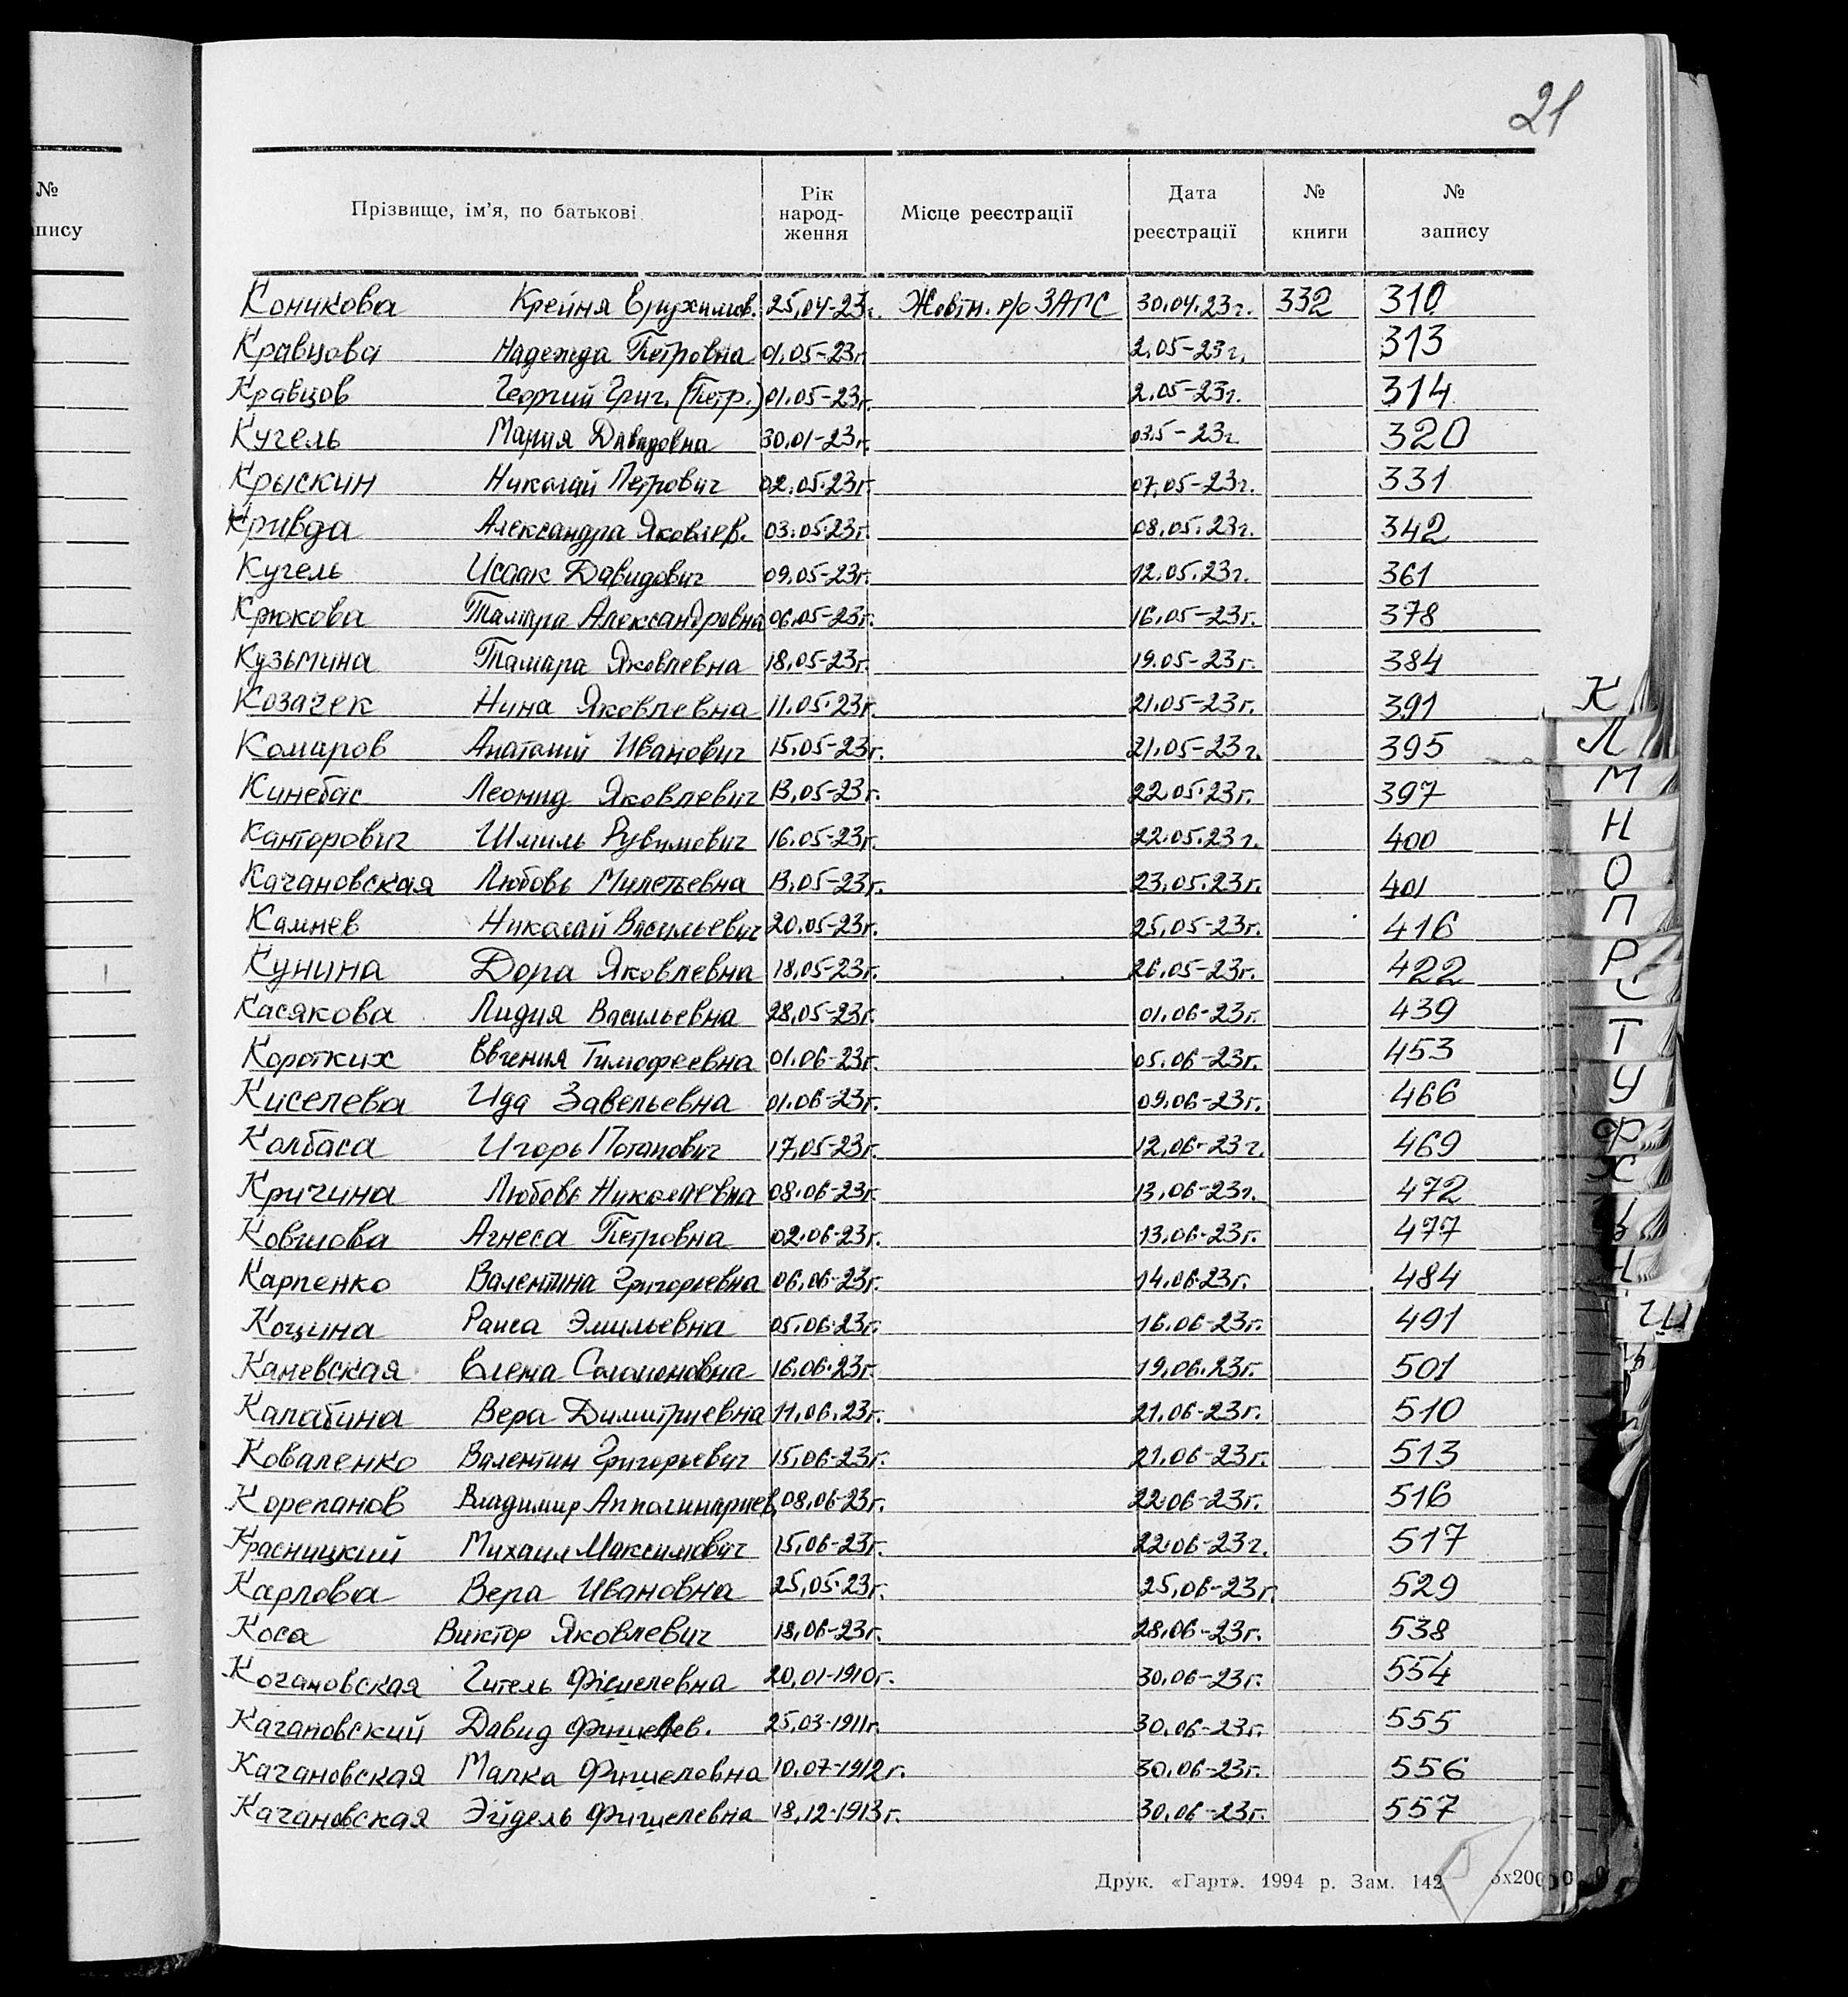 21
№
пису
Прізвище, ім’я, по батькові
Рік народ- ження
Місце реєстрації
Дата реєстрації
№ книги
№ запису
Коникова Крейня Ерухимов. 25.04-23г. Жовтн. р/о ЗАГС 30.04.23г. 332 310
Кравцова Надежда Петровна 01.05-23г. 2.05-23г. 313
Кравцов Георгий Григ. (Петр.) 01.05-23г. 2.05-23г. 314
Кугель Мария Давидовна 30.01-23г. 03.5-23г. 320
Крыскин Николай Петрович 02.05.23г. 07.05-23г. 331
Кривда Александра Яковлев. 03.05.23г. 08.05.23г. 342
Кугель Исаак Давидович 09.05-23г. 12.05.23г. 361
Крюкова Тамара Александровна 06.05-23г. 16.05-23г. 378
Кузьмина Тамара Яковлевна 18.05-23г. 19.05-23г. 384
Козачек Нина Яковлевна 11.05.23г. 21.05-23г. 391
Комаров Анатолий Иванович 15.05-23г. 21.05-23г. 395
Кинебас Леонид Яковлевич 13.05-23г. 22.05.23г. 397
Канторович Шмиль Рувимович 16.05-23г. 22.05.23г. 400
Качановская Любовь Милетьевна 13.05-23г. 23.05.23г. 401
Камнев Николай Васильевич 20.05-23г. 25.05-23г. 416
Кунина Дора Яковлевна 18.05-23г. 26.05-23г. 422
Касякова Лидия Васильевна 28.05-23г. 01.06-23г. 439
Коротких Евгения Тимофеевна 01.06-23г. 05.06-23г. 453
Киселева Ида Завельевна 01.06-23г. 09.06-23г. 466
Колбаса Игорь Потапович 17.05-23г. 12.06-23г. 469
Кричина Любовь Николаевна 08.06-23г. 13.06-23г. 472
Ковшова Агнеса Петровна 02.06-23г. 13.06-23г. 477
Карпенко Валентина Григорьевна 06.06-23г. 14.06.23г. 484
Коцина Раиса Эмильевна 05.06.23г. 16.06-23г. 491
Каневская Елена Соломоновна 16.06.23г. 19.06.23г. 501
Калабина Вера Димитриевна 11.06.23г. 21.06-23г. 510
Коваленко Валентин Григорьевич 15.06-23г. 21.06-23г. 513
Корепанов Владимир Апполинариев. 08.06-23г. 22.06-23г. 516
Красницкий Михаил Максимович 15.06-23г. 22.06-23г. 517
Карлова Вера Ивановна 25.05.23г. 25.06-23г. 529
Коса Виктор Яковлевич 18.06-23г. 28.06-23г. 538
Кочановская Гитель Фишелевна 20.01-1910г. 30.06-23г. 554
Качановский Давид Фишелев. 25.03-1911г. 30.06-23г. 555
Качановская Малка Фишеловна 10.07-1912г. 30.06-23г. 556
Качановская Эйдель Фишелевна 18.12-1913г. 30.06-23г. 557
К
Л
М
Н
О
П
Р
С
Т
У
Ф
Х
Друк. «Гарт». 1994 р. Зам. 142